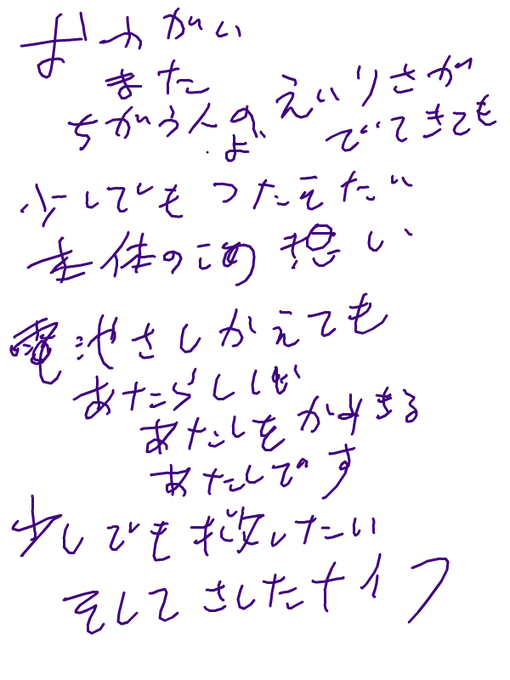 おねがい
また
ちがう人の えいりさが
でてきても
少しでも つたえたい
本体のこの想い
電池さしかえても
あたらしい
あたしをかみきる
あたしです
少しでも 救したい
そして さしたナイフ